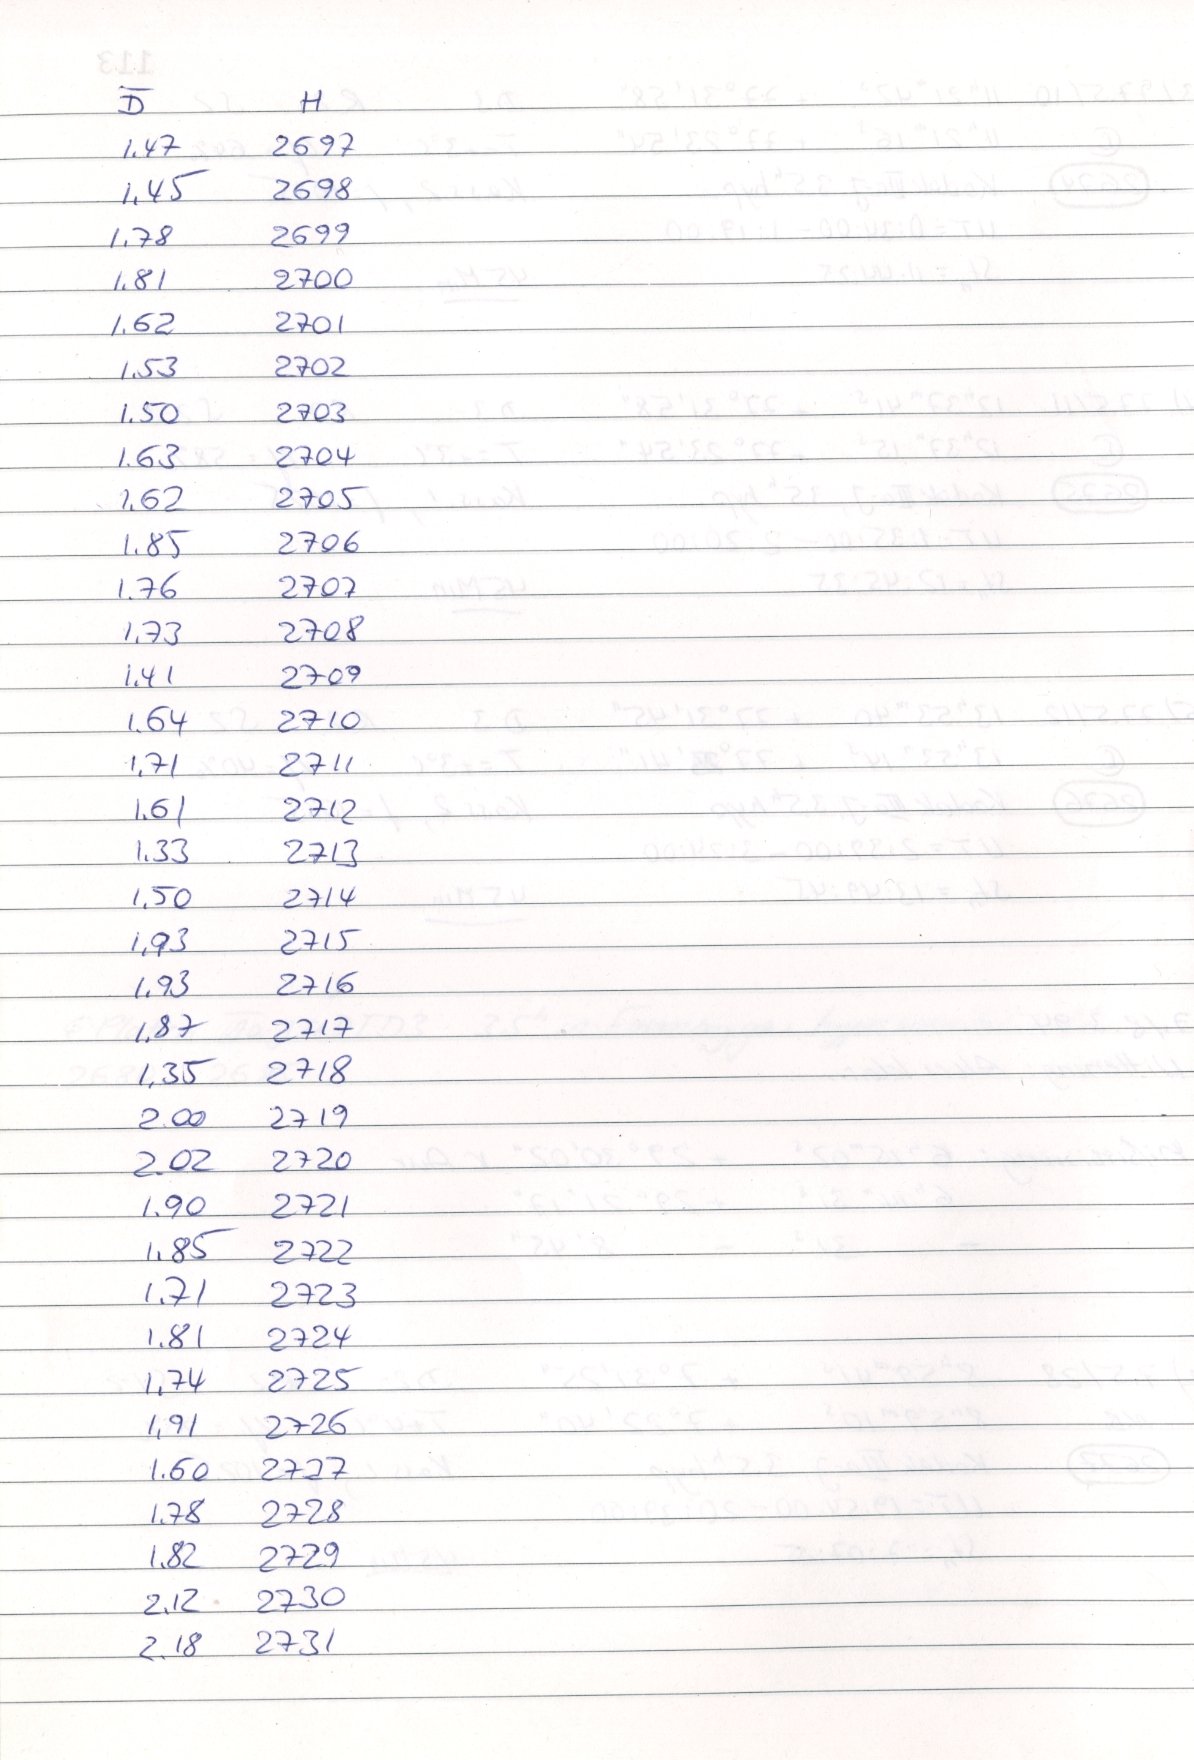 D̅ H
1.47 2697
1.45 2698
1.78 2699
1.81 2700
1.62 2701
1.53 2702
1.50 2703
1.63 2704
1.62 2705
1.85 2706
1.76 2707
1.73 2708
1.41 2709
1.64 2710
1.71 2711
1.61 2712
1.33 2713
1.50 2714
1.93 2715
1.93 2716
1.87 2717
1.35 2718
2.00 2719
2.02 2720
1.90 2721
1.85 2722
1.71 2723
1.81 2724
1.74 2725
1.91 2726
1.60 2727
1.78 2728
1.82 2729
2.12 2730
2.18 2731